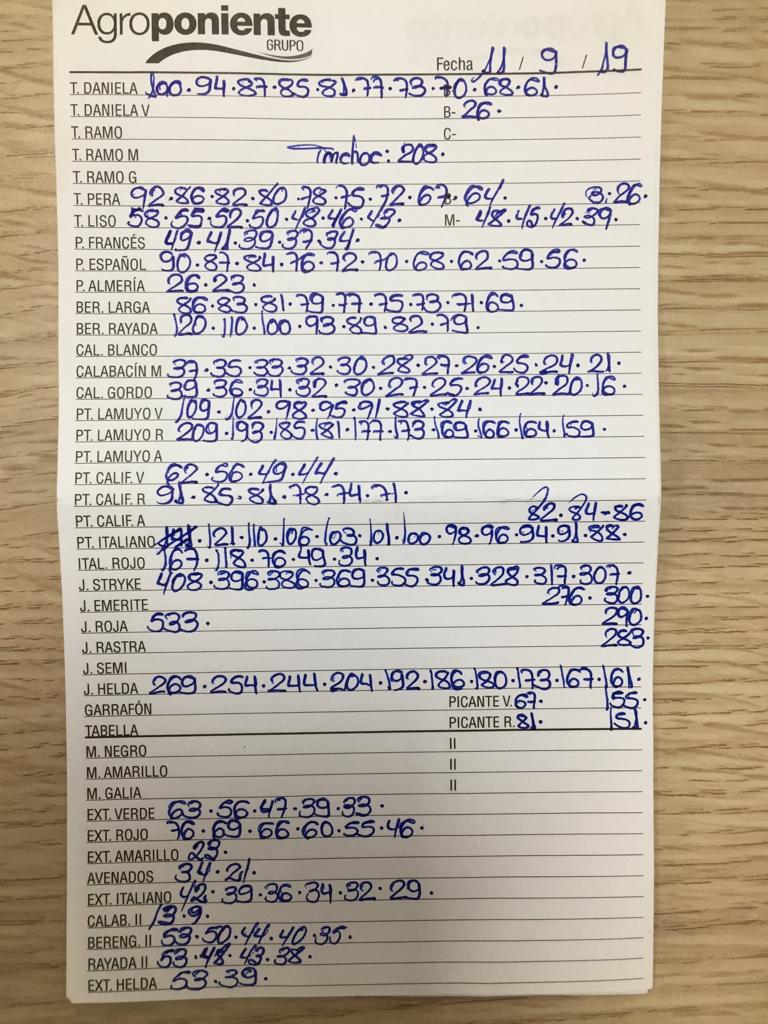 Agroponiente
GRUPO
Fecha 11 / 9 / 19
T. DANIELA 100.94.87.85.81.77.73.70.68.61.
T. DANIELA V B- 26.
T. RAMO C-
T. RAMO M Tmchoc: 208.
T. RAMO G
T. PERA 92.86.82.80.78.75.72.67.64. B:26.
T. LISO 58.55.52.50.48.46.43. M- 48.45.42.39.
P. FRANCÉS 49.41.39.37.34.
P. ESPAÑOL 90.87.84.76.72.70.68.62.59.56.
P. ALMERÍA 26.23.
BER. LARGA 86.83.81.79.77.75.73.71.69.
BER. RAYADA 120.110.100.93.89.82.79.
CAL. BLANCO
CALABACÍN M 37.35.33.32.30.28.27.26.25.24.21.
CAL. GORDO 39.36.34.32.30.27.25.24.22.20.16.
PT. LAMUYO V 109.102.98.95.91.88.84.
PT. LAMUYO R 209.193.185.181.177.173.169.166.164.159.
PT. LAMUYO A
PT. CALIF. V 62.56.49.44.
PT. CALIF. R 91.85.81.78.74.71.
PT. CALIF. A 82.84-86
PT. ITALIANO .121.110.106.103.101.100.98.96.94.91.88.
ITAL. ROJO 167.118.76.49.34.
J. STRYKE 408.396.386.369.355.341.328.317.307.
J. EMERITE 276. 300.
J. ROJA 533. 290.
J. RASTRA 283.
J. SEMI
J. HELDA 269.254.244.204.192.186.180.173.167.161.
GARRAFÓN PICANTE V. 67. 155.
TABELLA PICANTE R. 81. 151.
M. NEGRO II
M. AMARILLO II
M. GALIA II
EXT. VERDE 63.56.47.39.33.
EXT. ROJO 76.69.66.60.55.46.
EXT. AMARILLO 23.
AVENADOS 34.21.
EXT. ITALIANO 42.39.36.34.32.29.
CALAB. II 13.9.
BERENG. II 53.50.44.40.35.
RAYADA II 53.48.43.38.
EXT. HELDA 53.39.